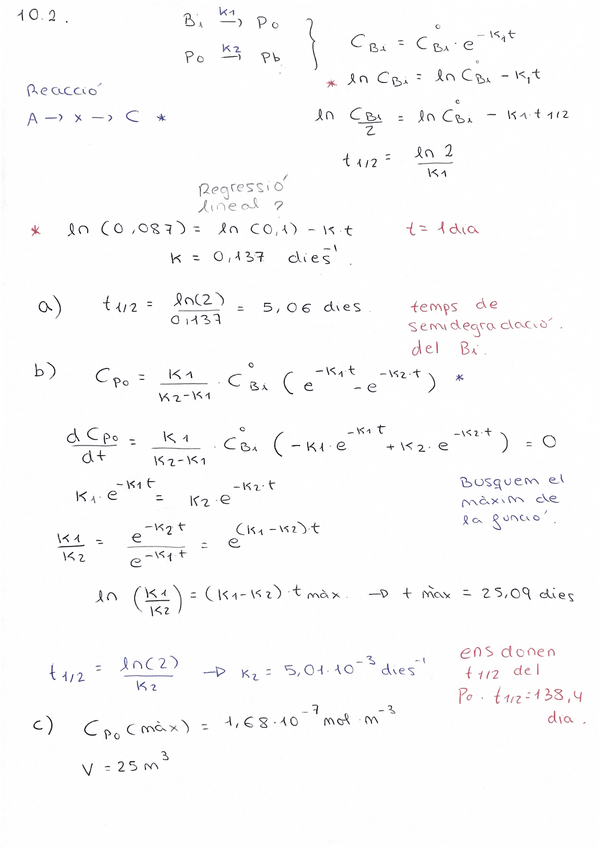 10.2.
Bi —K1→ Po
Po —K2→ Pb
C Bi = C°Bi · e^-K1t
* ln C Bi = ln C°Bi - K1t
ln C Bi/2 = ln C°Bi - K1 · t 1/2
t 1/2 = ln 2/K1
Reacció
A → x → C *
Regressió
lineal ?
* ln (0,087) = ln (0,1) - K · t t = 1 dia
K = 0,137 dies^-1.
a) t 1/2 = ln(2)/0,137 = 5,06 dies.
temps de
semidegradació.
del Bi.
b) C Po = K1/(K2-K1) · C°Bi (e^-K1t - e^-K2·t) *
d C Po/dt = K1/(K2-K1) · C°Bi (-K1 · e^-K1t + K2 · e^-K2·t) = 0
K1 · e^-K1t = K2 · e^-K2·t
Busquem el
màxim de
la funció.
K1/K2 = e^-K2t/e^-K1·t = e^(K1-K2)·t
ln (K1/K2) = (K1-K2) · t màx. → t màx = 25,09 dies
t 1/2 = ln(2)/K2 → K2 = 5,01·10^-3 dies^-1
ens donen
t 1/2 del
Po. t 1/2 = 138,4
dia.
c) C Po (màx) = 1,68·10^-7 mol · m^-3
V = 25 m^3